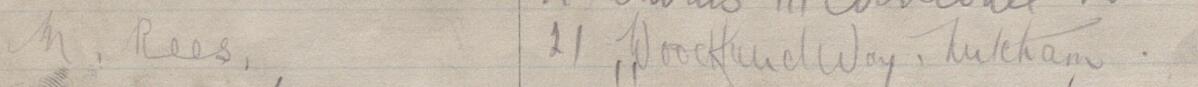 M. Rees, 21, Woodland Way, Mitcham.